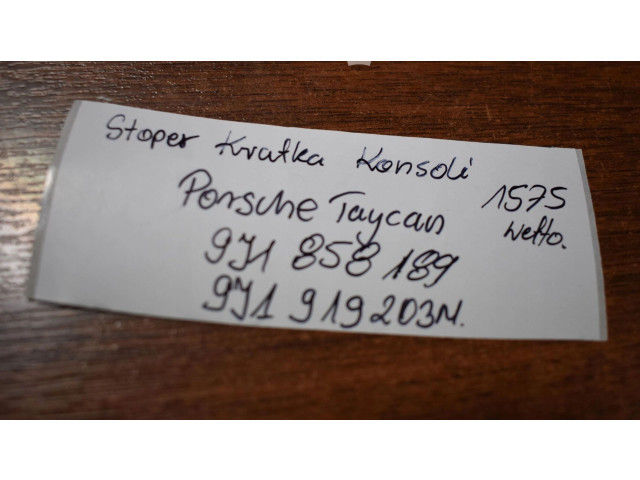 Stoper Kratka Konsoli
Porsche Taycan
1575
netto.
9J1 858 189
9J1 919 203M.